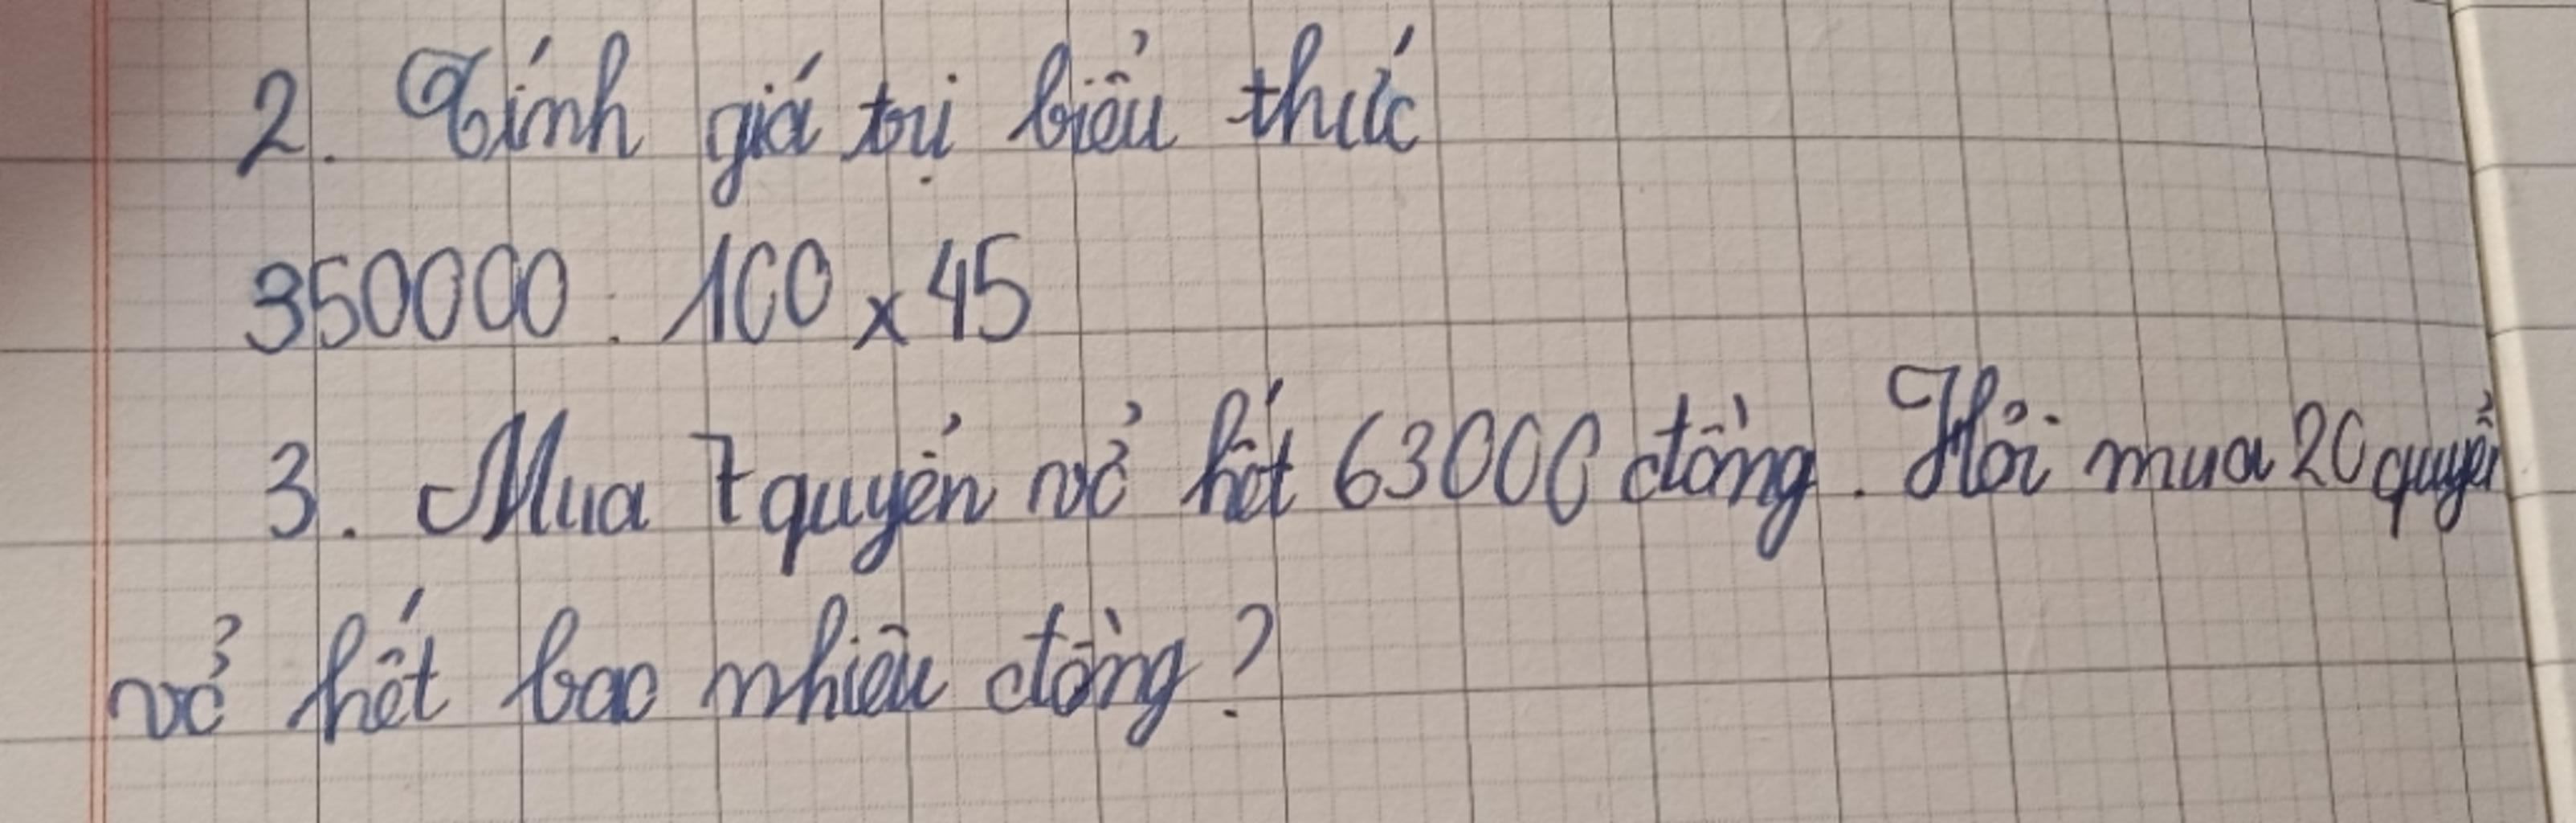 2. Tính giá trị biểu thức
350000 : 100 x 45
3. Mua 7 quyển vở hết 63000 đồng. Hỏi mua 20 quyển
vở hết bao nhiêu đồng?